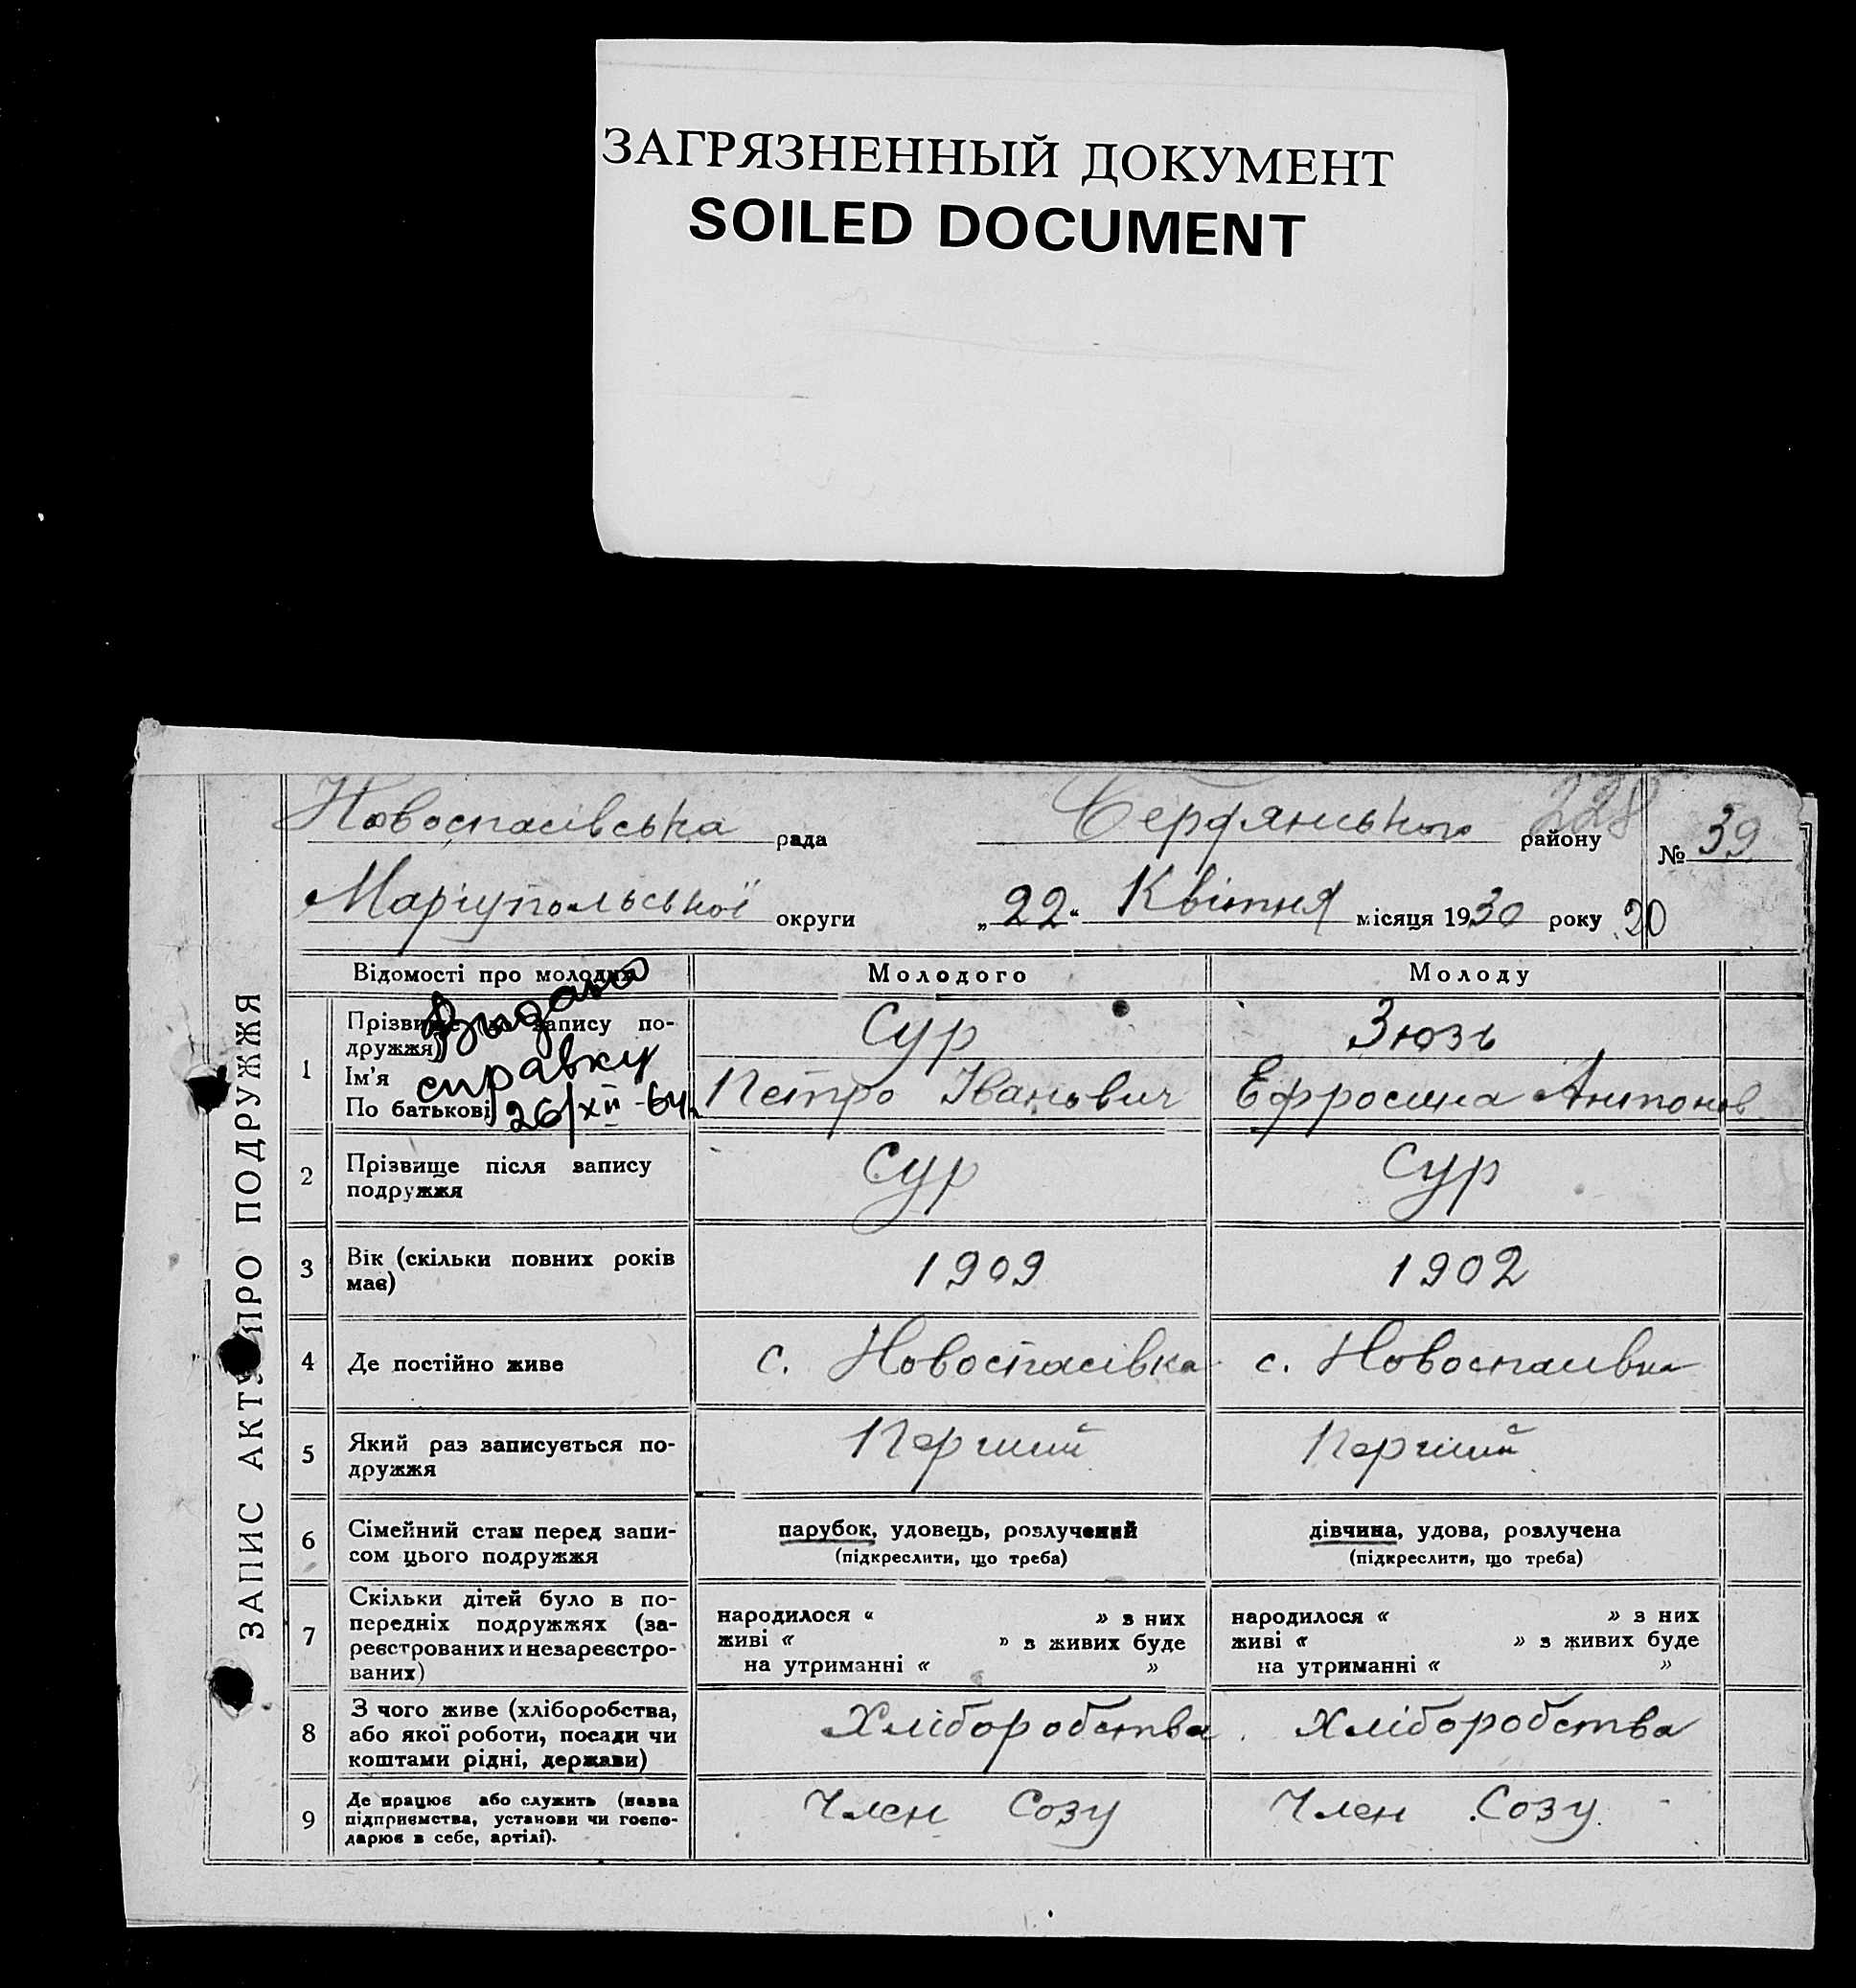 ЗАГРЯЗНЕННЫЙ ДОКУМЕНТ
SOILED DOCUMENT
ЗАПИС АКТУ ПРО ПОДРУЖЖЯ
Новоспасівська рада Бердянського району 228 № 39
Маріупольської округи „22“ Квітня місяця 1930 року 20
Відомості про молодих Молодого Молоду
1 Прізвище (до запису по-
дружжя)
Сур Зюзь
Ім'я
По батькові
Петро Іванович Ефросина Антонов
Видано
справку
26/XII-64
2 Прізвище після запису
подружжя
Сур Сур
3 Вік (скільки повних років
має)
1909 1902
4 Де постійно живе с. Новоспасівка с. Новоспасівка
5 Який раз записується по-
дружжя
Перший Перший
6 Сімейний стан перед запи-
сом цього подружжя
парубок, удовець, розлучений дівчина, удова, розлучена
(підкреслити, що треба) (підкреслити, що треба)
7 Скільки дітей було в по-
передніх подружжях (за-
реєстрованих и незареєстро-
ваних)
народилося « » з них народилося « » з них
живі « » з живих буде живі « » з живих буде
на утриманні « » на утриманні « »
8 З чого живе (хліборобства,
або якої роботи, посади чи
коштами рідні, держави)
Хліборобства Хліборобства
9 Де працює або служить (назва
підприємства, установи чи госпо-
дарює в себе, артілі).
Член Созу Член Созу